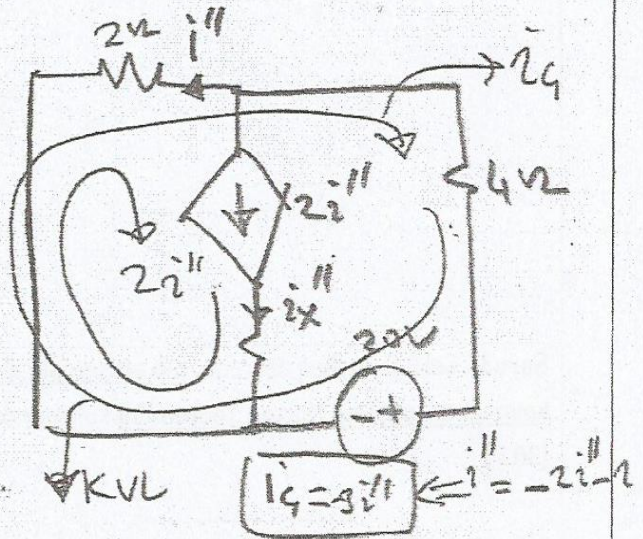 2Ω i''
i4
4Ω
2i''
2i''
ix''
20V
- +
KVL
i4 = -3i'' ⇐ i'' = -2i'' - i